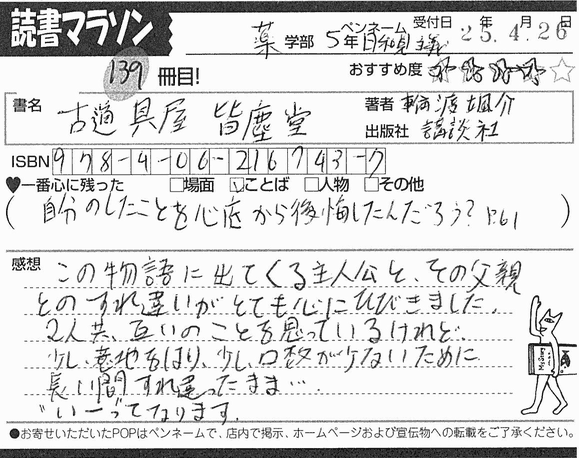 読書マラソン
薬 学部 5年 ペンネーム 日和見主義 受付日 25年 4月 26日
139 冊目! おすすめ度 ☆☆☆☆☆
書名 古道具屋 皆塵堂 著者 輪渡颯介
出版社 講談社
ISBN 978-4-06-216743-7
♥一番心に残った □場面 ☑ことば □人物 □その他
(自分のしたことを心底から後悔したんだろう? P.61)
感想 この物語に出てくる主人公と、その父親
とのすれ違いがとても心にひびきました。
2人共、互いのことを思っているけれど、
少し、意地をはり、少し、口数が少ないために
長い間すれ違ったまま…。
●お寄せいただいたPOPはペンネームで、店内で掲示、ホームページおよび宣伝物への転載をご了承ください。